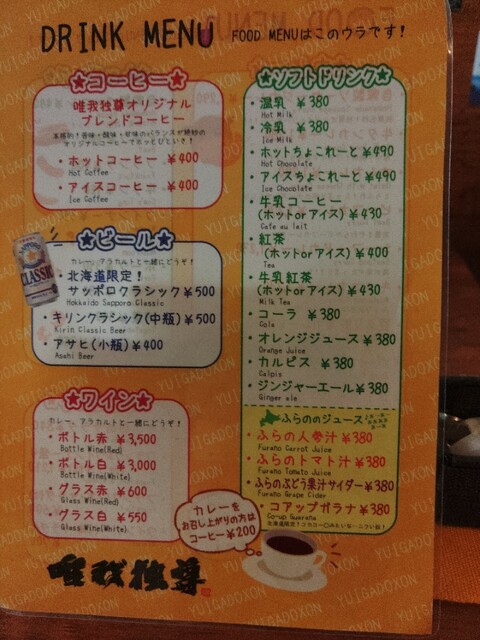 DRINK MENU FOOD MENUはこのウラです!
★コーヒー★
唯我独尊オリジナル
ブレンドコーヒー
オリジナルコーヒーでホッとひといき!
・ホットコーヒー ¥400
Hot Coffee
・アイスコーヒー ¥400
Ice Coffee
★ビール★
カレー、アラカルトと一緒にどうぞ!
・北海道限定!
サッポロクラシック¥500
Hokkaido Sapporo Classic
・キリンクラシック(中瓶)¥500
Kirin Classic Beer
・アサヒ(小瓶)¥400
Asahi Beer
SAPPORO
CLASSIC
★ワイン★
カレー、アラカルトと一緒にどうぞ!
・ボトル赤 ¥3,500
Bottle Wine(Red)
・ボトル白 ¥3,000
Bottle Wine(White)
・グラス赤 ¥600
Glass Wine(Red)
・グラス白 ¥550
Glass Wine(White)
★ソフトドリンク★
・温乳 ¥380
Hot Milk
・冷乳 ¥380
Ice Milk
・ホットちょこれーと¥490
Hot Chocolate
・アイスちょこれーと¥490
Ice Chocolate
・牛乳コーヒー
(ホットorアイス)¥430
Cafe au lait
・紅茶
(ホットorアイス)¥400
Tea
・牛乳紅茶
(ホットorアイス)¥430
Milk Tea
・コーラ ¥380
Cola
・オレンジジュース¥380
Orange Juice
・カルピス ¥380
Calpis
・ジンジャーエール¥380
Ginger ale
ふらののジュース
・ふらの人参汁¥380
Furano Carrot Juice
・ふらのトマト汁¥380
Furano Tomato Juice
・ふらのぶどう果汁サイダー¥380
Furano Grape Cider
・コアップガラナ¥380
Co-up Guarana
カレーを
お召し上がりの方は
コーヒー¥200
唯我独尊
YUIGADOXON